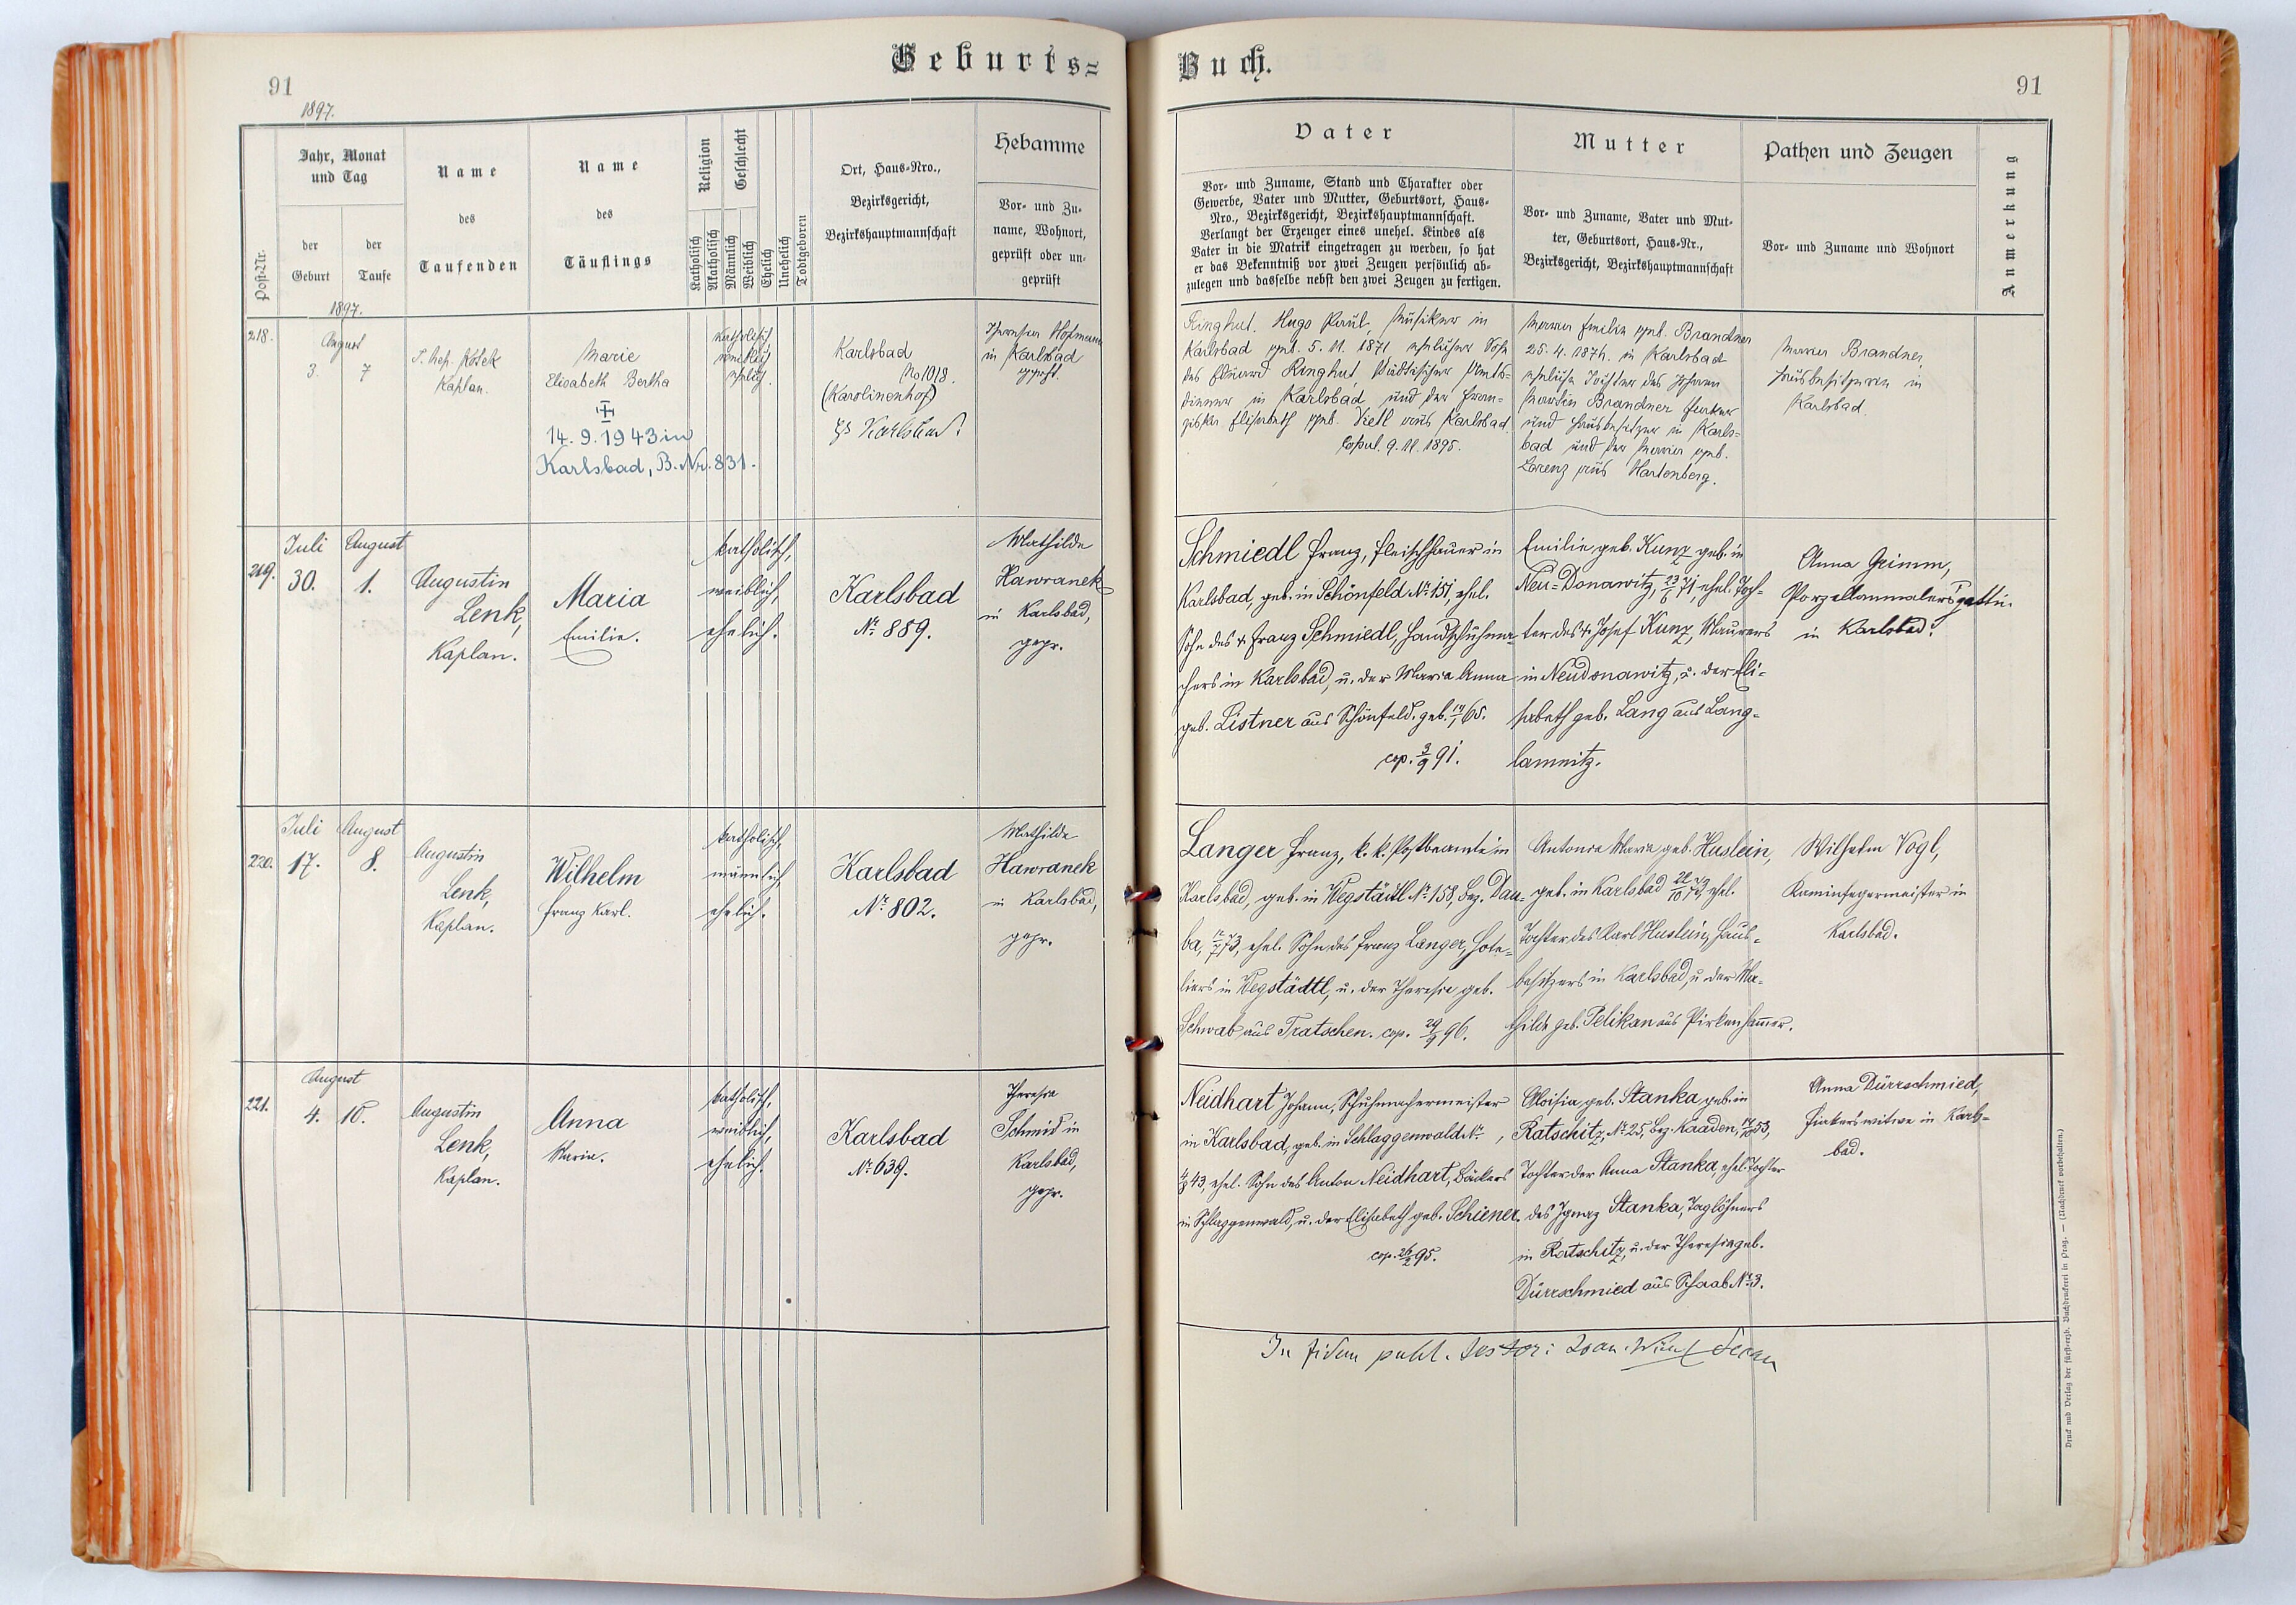 Geburts=
91
1897.
Post-Nr.
Jahr, Monat
und Tag
der
Geburt
der
Taufe
Name
des
Taufenden
Name
des
Täuflings
Religion
Katholisch
Akatholisch
Geschlecht
Männlich
Weiblich
Ehelich
Unehelich
Todtgeboren
Ort, Haus-Nro.,
Bezirksgericht,
Bezirkshauptmannschaft
Hebamme
Vor- und Zu-
name, Wohnort,
geprüft oder un-
geprüft
1897.
218.
August
3.
7
Kaplan.
Marie
Elisabeth Bertha
14. 9. 1943 in
Karlsbad, B. Nr. 831.
katholisch,
weiblich
ehelich.
Karlsbad
No 1018.
(Karolinenhof)
Theresia Hofmann
in Karlsbad
geprft.
219.
Juli
30.
August
1.
Augustin
Lenk,
Kaplan.
Maria
Emilie.
katholisch,
weiblich,
ehelich.
Karlsbad
Nr. 889.
Mathilde
Hawranek
in Karlsbad,
gepr.
220.
Juli
17.
August
8.
Augustin
Lenk,
Kaplan.
Wilhelm
Franz Karl.
katholisch,
männlich,
ehelich.
Karlsbad
Nr. 802.
Mathilde
Hawranek
in Karlsbad,
gepr.
221.
August
4.
10.
Augustin
Lenk,
Kaplan.
Anna
Maria.
katholisch,
weiblich,
ehelich.
Karlsbad
Nr. 639.
Theresia
Schmid in
Karlsbad,
gepr.
Buch.
91
Vater
Vor- und Zuname, Stand und Charakter oder
Gewerbe, Vater und Mutter, Geburtsort, Haus-
Nro., Bezirksgericht, Bezirkshauptmannschaft.
Verlangt der Erzeuger eines unehel. Kindes als
Vater in die Matrik eingetragen zu werden, so hat
er das Bekenntniß vor zwei Zeugen persönlich ab-
zulegen und dasselbe nebst den zwei Zeugen zu fertigen.
Mutter
Vor- und Zuname, Vater und Mut-
ter, Geburtsort, Haus-Nr.,
Bezirksgericht, Bezirkshauptmannschaft
Pathen und Zeugen
Vor- und Zuname und Wohnort
Anmerkung
Ringhut. Hugo Paul, Musiker in
Karlsbad geb. 5. 11. 1871 ehelicher Sohn
des Eduard Ringhut, städtischer Amts-
diener in Karlsbad und der Fran-
ziska Elisabeth geb. Vietl aus Karlsbad.
Copul. 9. 11. 1895.
Maria Emilie geb. Brandner
25. 4. 1874. in Karlsbad
eheliche Tochter des Johann
Martin Brandner
und Hausbesitzer in Karls-
bad und der Maria geb.
Lorenz aus Hartenberg.
Maria Brandner,
Hausbesitzerin in
Karlsbad.
Schmiedl Franz, Fleischhauer in
Karlsbad, geb. in Schönfeld Nr. 151, ehel.
Sohn des Franz Schmiedl, Handschuhma-
chers in Karlsbad, u. der Maria Anna
geb. Listner aus Schönfeld. geb. 19/1 65.
cop. 3/9 91.
Emilie geb. Kunz geb. in
Neu-Donawitz, 23/6 71, ehel. Toch-
ter des Josef Kunz, Maurers
in Neudonawitz, u. der Eli-
sabeth geb. Lang aus Lang-
lamnitz.
Anna Grimm,
Porzellanmalersgattin
in Karlsbad.
Langer Franz, k. k. Postbeamte in
Karlsbad, geb. in Wegstädtl Nr. 158, Bez. Dau-
ba, 73, ehel. Sohn des Franz Langer, Hote-
liers in Wegstädtl, u. der Theresia geb.
Schwab aus Tratschen. cop. 29/9 96.
Antonia Maria geb. Huslein,
geb. in Karlsbad 73, ehel.
Tochter des Karl Huslein, Haus-
besitzers in Karlsbad, u. der Ma-
thilde geb. Pelikan aus Pirkenhammer.
Wilhelm Vogl,
Kaminfegermeister in
Karlsbad.
Neidhart Johann, Schuhmachermeister
in Karlsbad, geb. in Schlaggenwald Nr. ,
43, ehel. Sohn des Anton Neidhart, Bäckers
in Schlaggenwald, u. der Elisabeth geb. Schiener.
cop. 26/2 95.
Aloisia geb. Stanka geb. in
Ratschitz, Nr. 25, Bez. Kaaden, 53,
Tochter der Anna Stanka, ehel. Tochter
des Ignaz Stanka, Taglöhners
in Ratschitz, u. der Theresia geb.
Dürrschmied aus Schaab Nr. 3.
Anna Dürrschmied,
Fiakerswitwe in Karls-
bad.
In fidem publ. testor:
Druck und Verlag der fürst-erzb. Buchdruckerei in Prag. — (Nachdruck vorbehalten.)